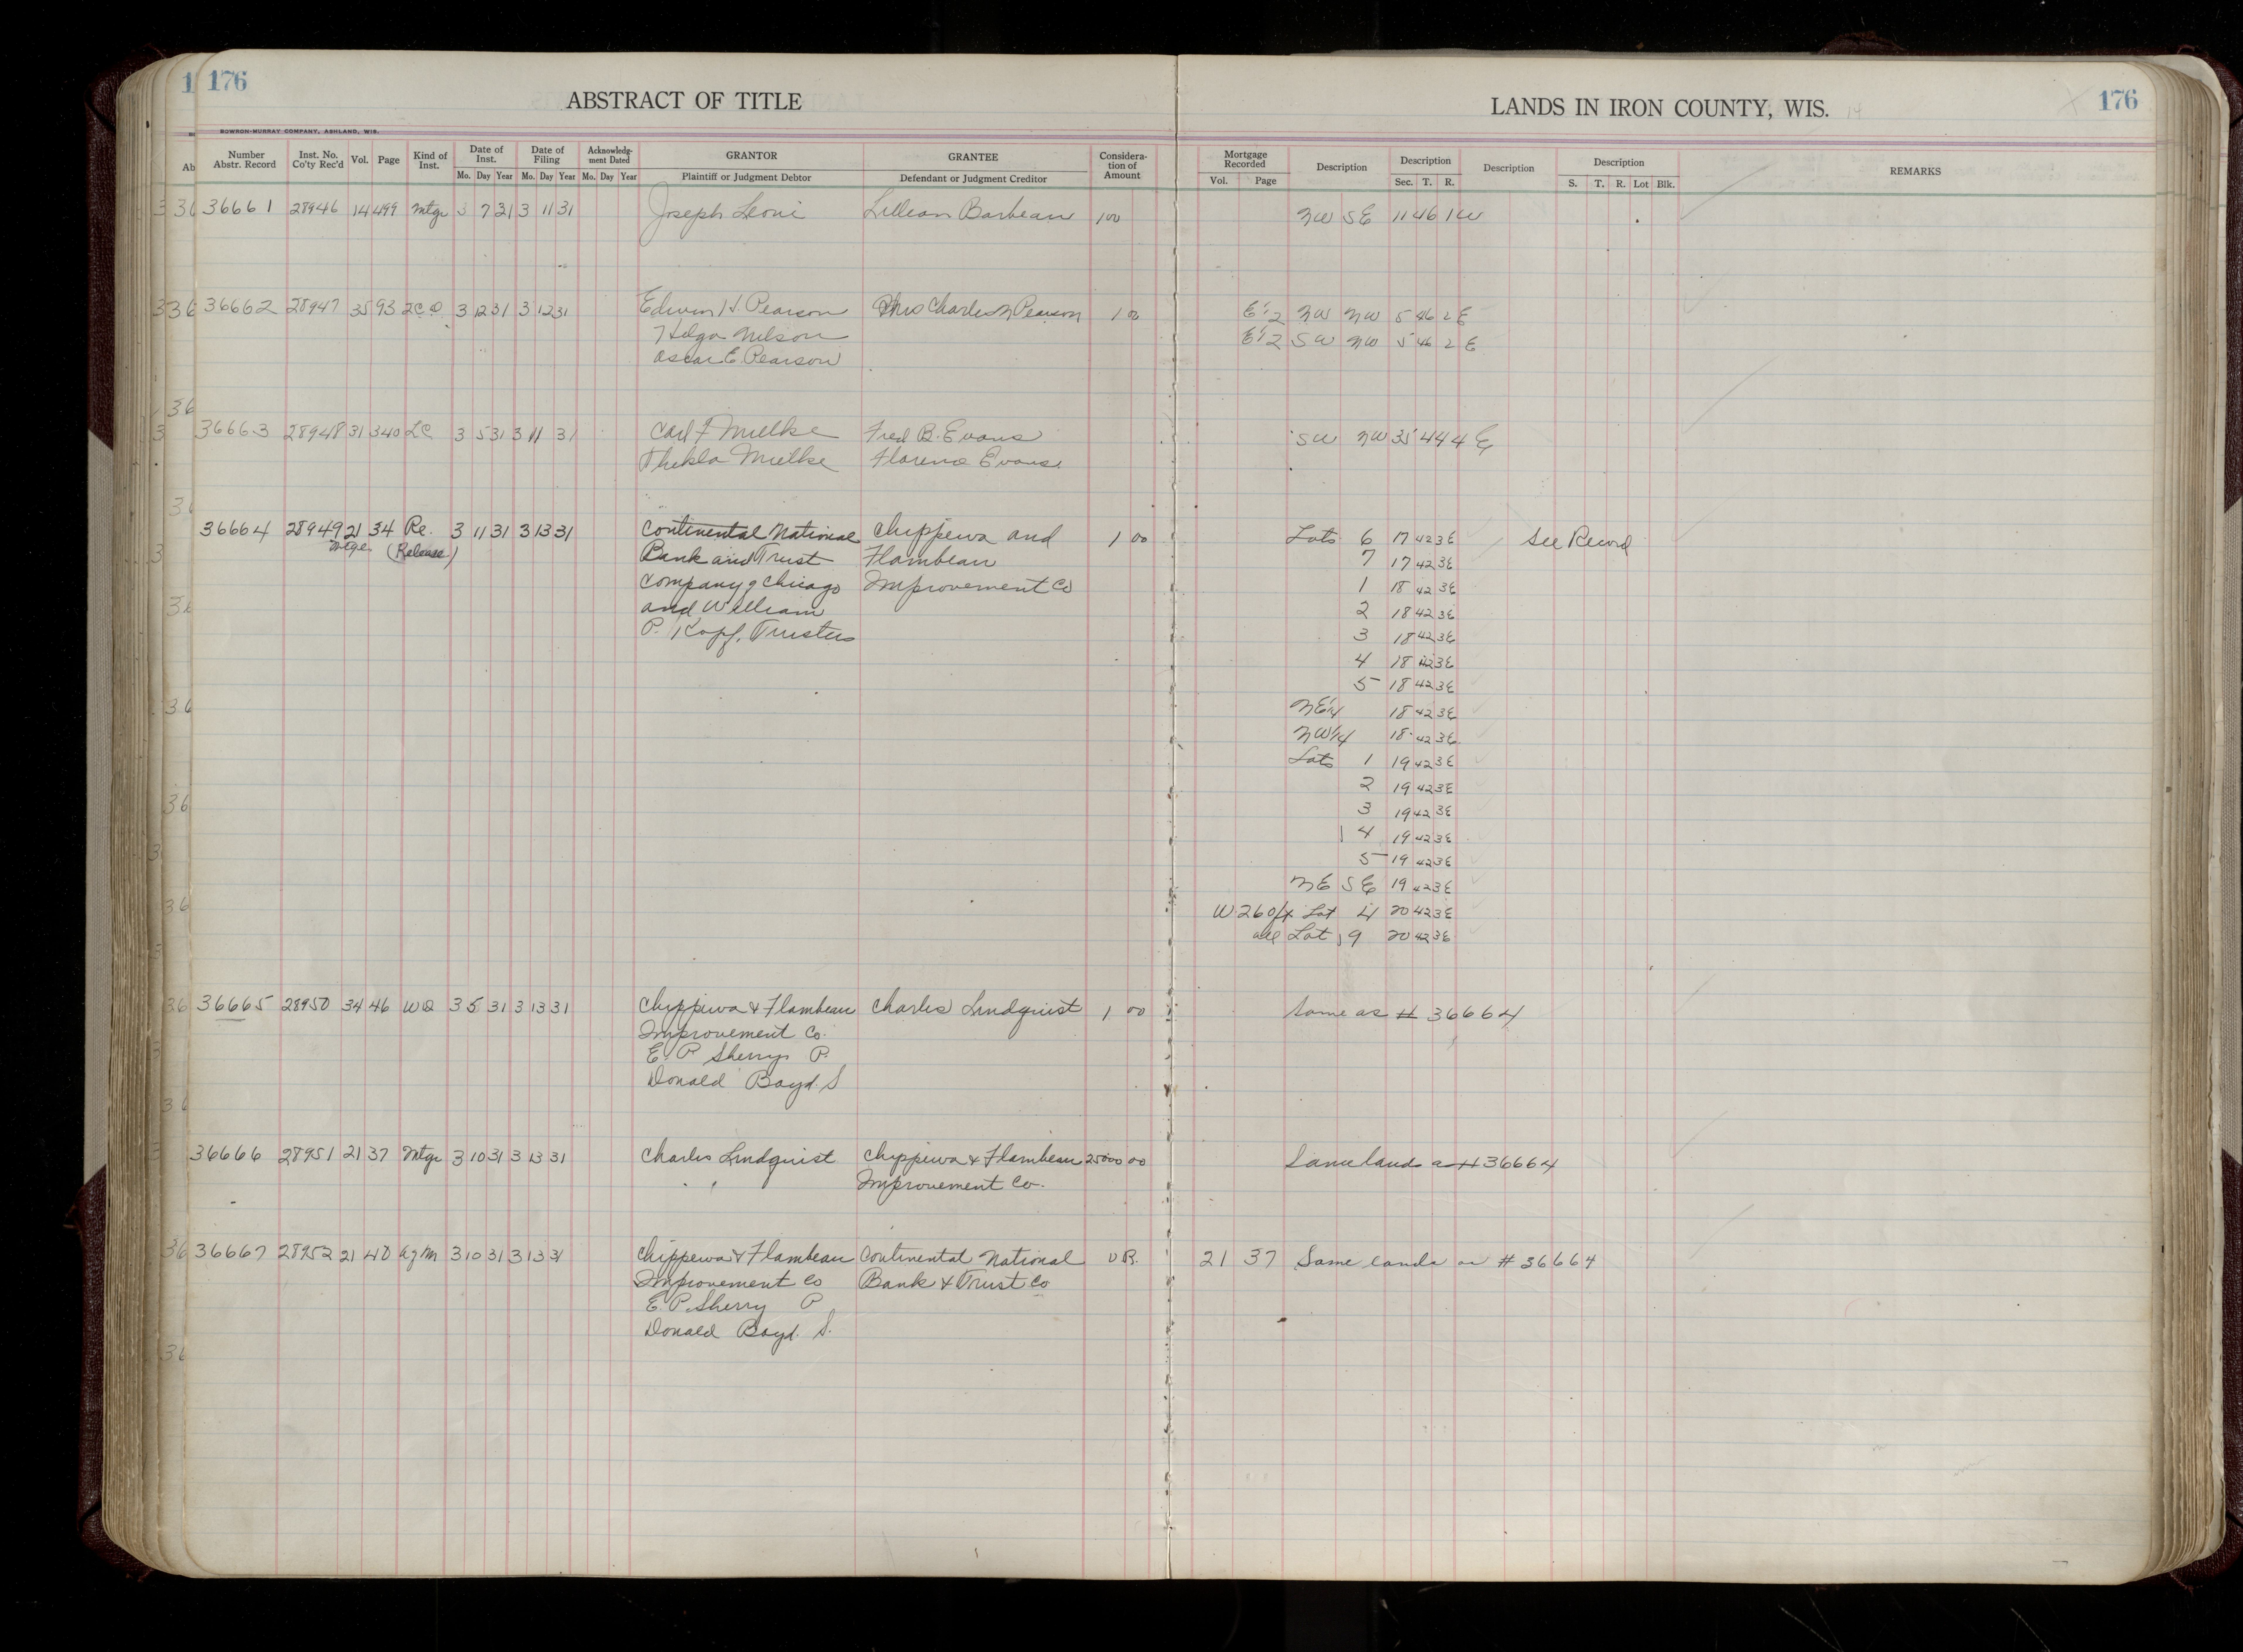 1 176
ABSTRACT OF TITLE
LANDS IN IRON COUNTY, WIS.
176
BOWRON-MURRAY COMPANY, ASHLAND, WIS.
Ab Number Abstr. Record Inst. No. Co'ty Rec'd Vol. Page Kind of Inst. Date of Inst. Mo. Day Year Date of Filing Mo. Day Year Acknowledg-ment Dated Mo. Day Year GRANTOR Plaintiff or Judgment Debtor GRANTEE Defendant or Judgment Creditor Considera-tion of Amount Mortgage Recorded Vol. Page Description Description Sec. T. R. Description Description S. T. R. Lot Blk. REMARKS
36661 28946 14 499 Mtge 3 7 31 3 11 31 Joseph Leoni Lillian Barbeau 1 00 NW SE 11 46 1W
36662 28947 35 93 2CD 3 12 31 3 12 31 Edwin H. Pearson Charles Pearson 1 00 E1/2 NW NW 5 46 2 E
Helga Nelson E1/2 SW NW 5 46 2 E
Oscar E. Pearson
36663 28948 31 340 LC 3 5 31 3 11 31 Carl F Mielke Fred B. Evans SW NW 35 44 4 E
Thekla Mielke Florence Evans
36664 28949 21 34 Re. 3 11 31 3 13 31 Continental National Chippewa and 1 00 Lots 6 17 42 3E See Record
Mtge. (Release) Bank and Trust Flambeau 7 17 42 3E
Company of Chicago Improvement Co 1 18 42 3E
and William 2 18 42 3E
P. Kopf, Trustees 3 18 42 3E
4 18 42 3E
5 18 42 3E
NE1/4 18 42 3E
NW1/4 18 42 3E
Lots 1 19 42 3E
2 19 42 3E
3 19 42 3E
4 19 42 3E
5 19 42 3E
NE SE 19 42 3E
W 260 ft Lot 4 20 42 3E
all Lot 9 20 42 3E
36665 28950 34 46 WD 3 5 31 3 13 31 Chippewa & Flambeau Charles Lindquist 1 00 Same as # 36664
Improvement Co.
E. P. Sherry P.
Donald Boyd. S
36666 28951 21 37 Mtge 3 10 31 3 13 31 Charles Lindquist Chippewa & Flambeau 25000 00 Same lands as # 36664
Improvement Co.
36667 28952 21 40 AgM 3 10 31 3 13 31 Chippewa & Flambeau Continental National VR. 21 37 Same lands as # 36664
Improvement Co Bank & Trust Co
E. P. Sherry P
Donald Boyd. S.